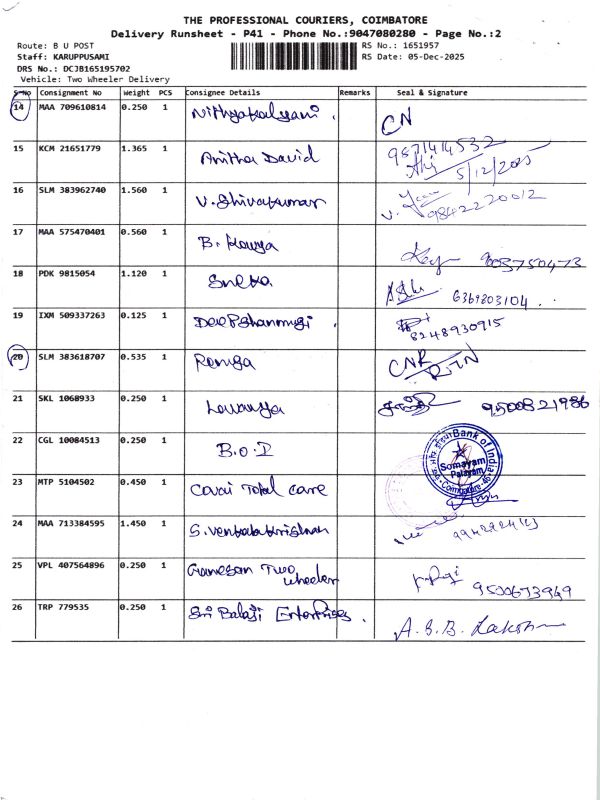 THE PROFESSIONAL COURIERS, COIMBATORE
Delivery Runsheet - P41 - Phone No.:9047080280 - Page No.:2
Route: B U POST
RS No.: 1651957
Staff: KARUPPUSAMI
RS Date: 05-Dec-2025
DRS No.: DCJB165195702
Vehicle: Two Wheeler Delivery
S No Consignment No Weight PCS Consignee Details Remarks Seal & Signature
14 MAA 709610814 0.250 1 Nithyakalyani . CN
15 KCM 21651779 1.365 1 Anitha David 9871414532
5/12/2025
16 SLM 383962740 1.560 1 V. Shivakumar V. 9842220012
17 MAA 575470401 0.560 1 B. Kavya
18 PDK 9815054 1.120 1 Sneka 6369803104 .
19 IXM 509337263 0.125 1 DeePShanmugi . 8248930915
20 SLM 383618707 0.535 1 Ramya CNR
RTN
21 SKL 1068933 0.250 1 Lavanya 9500821986
22 CGL 10084513 0.250 1 B.O.I
Bank of India
Somayam
Palayam
Coimbatore
23 MTP 5104502 0.450 1 Covai Total care
24 MAA 713384595 1.450 1 S. Venkatakrishnan
25 VPL 407564896 0.250 1 Ganesan Two
wheeler 9500673949
26 TRP 779535 0.250 1 Sri Balaji Enterprises. A.S.B. Lakshm